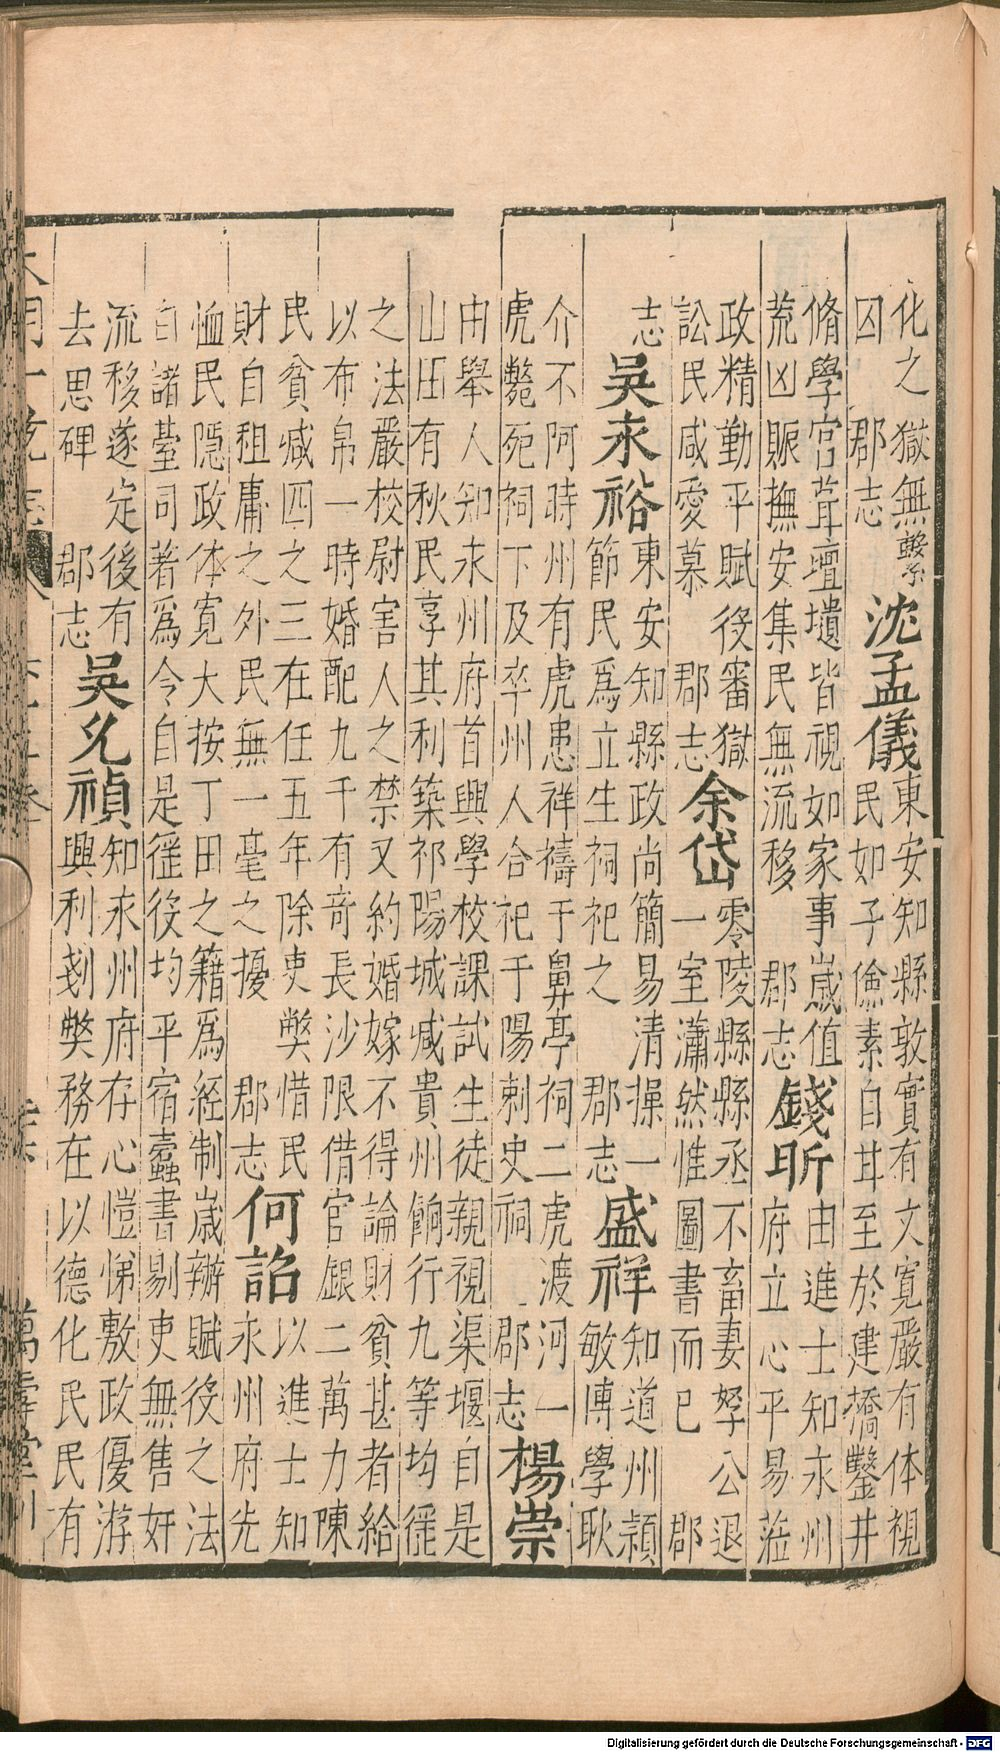 化之獄無繫
囚 郡志
沈孟儀
東安知縣敦實有文寬嚴有体視
民如子儉素自甘至於建橋鑿井
脩學宮葺壇壝皆視如家事歲值
荒凶賑撫安集民無流移 郡志
錢昕
由進士知永州
府立心平易蒞
政精勤平賦役審獄
訟民咸愛慕 郡志
余岱
零陵縣縣丞不畜妻孥公退
一室瀟然惟圖書而已 郡
志
吳永裕
東安知縣政尚簡易清操一
節民爲立生祠祀之 郡志
盛祥
知道州穎
敏博學耿
介不阿時州有虎患祥禱于鼻亭祠二虎渡河一
虎斃死祠下及卒州人合祀于陽剌史祠 郡志
楊崇
由舉人知永州府首興學校課試生徒親視渠堰自是
山田有秋民享其利築祁陽城減貴州餉行九等均徭
之法嚴校尉害人之禁又約婚嫁不得論財貧甚者給
以布帛一時婚配九千有奇長沙限借官銀二萬力陳
民貧減四之三在任五年除吏弊惜民
財自租庸之外民無一毫之擾 郡志
何詔
以進士知
永州府先
恤民隱政体寬大按丁田之籍爲經制歲辦賦役之法
自諸臺司著爲令自是徭役均平宿蠹書剔吏無售奸
流移遂定後有
去思碑 郡志
吳允禎
知永州府存心愷悌敷政優游
興利剗弊務在以德化民民有
大明一統志
萬壽堂刊
Digitalisierung gefördert durch die Deutsche Forschungsgemeinschaft - DFG